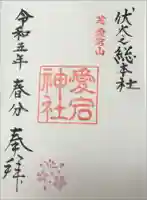 伏火之総本社
愛宕山
愛宕
神社
奉拝
令和五年 春分